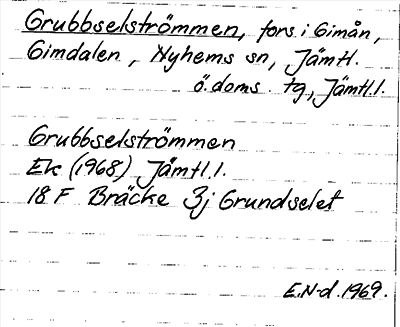 Grubbselströmmen, fors i Gimån,
Gimdalen, Nyhems sn, Jämtl.
ö. doms. tg., Jämtl. l.
Grubbselströmmen
Ek (1968) Jämtl. l.
18 F Bräcke 3j Grundselet
E.N-d. 1969.